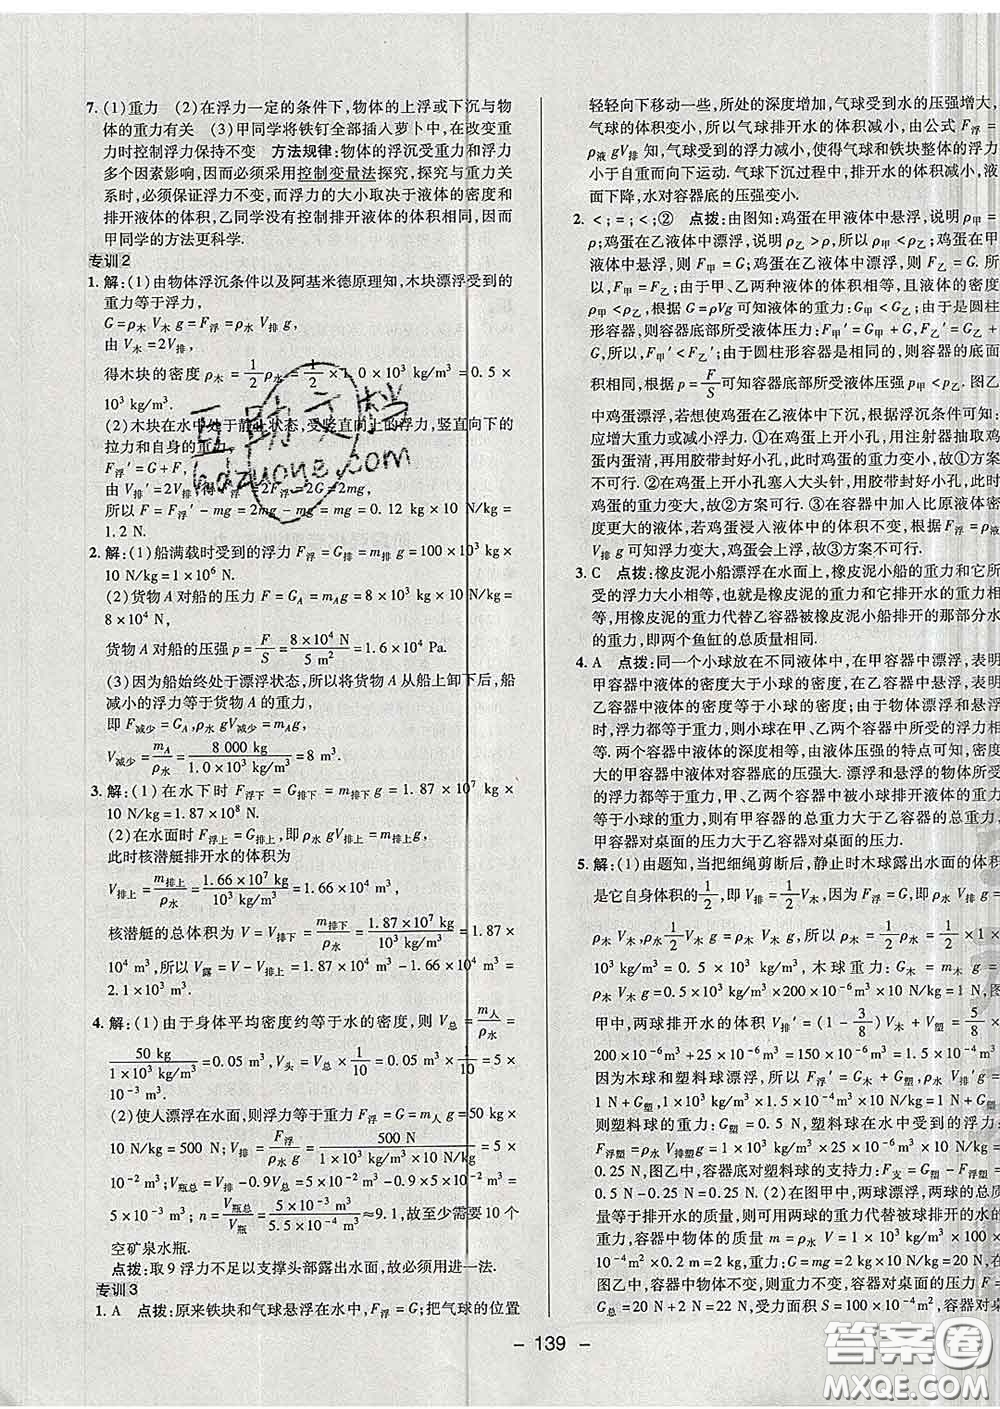 7. (1)重力 (2)在浮力一定的条件下,物体的上浮或下沉与物
体的重力有关 (3)甲同学将铁钉全部插入萝卜中,在改变重
力时控制浮力保持不变 方法规律:物体的浮沉受重力和浮力
多个因素影响,因而必须采用控制变量法探究,探究与重力关
系时,必须保证浮力不变,而浮力的大小取决于液体的密度和
排开液体的体积,乙同学没有控制排开液体的体积相同,因而
甲同学的方法更科学.
专训2
1. 解:(1)由物体浮沉条件以及阿基米德原理知,木块漂浮受到的
重力等于浮力,
G=ρ木 V木 g=F浮=ρ水 V排 g,
由 V木=2V排,
得木块的密度 ρ木=1/2 ρ水=1/2×1.0×10³ kg/m³=0.5×
10³ kg/m³.
(2)木块在水中处于静止状态,受竖直向上的浮力,竖直向下的
拉力和自身的重力.
F浮′=G+F,
由 V排′=2V排 得 F浮′=2F浮=2G=2mg,
所以 F=F浮′-mg=2mg-mg=mg=0.12 kg×10 N/kg=
1.2 N.
2. 解:(1)船满载时受到的浮力 F浮=G排=m排g=100×10³ kg×
10 N/kg=1×10⁶ N.
(2)货物 A 对船的压力 F=G_A=m_A g=8×10³ kg×10 N/kg=
8×10⁴ N,
货物 A 对船的压强 p=F/S=8×10⁴ N/5 m²=1.6×10⁴ Pa.
(3)因为船始终处于漂浮状态,所以将货物 A 从船上卸下后,船
减小的浮力等于货物 A 的重力,
即 F减少=G_A,ρ水 gV减少=m_A g,
V减少=m_A/ρ水=8 000 kg/1.0×10³ kg/m³=8 m³.
3. 解:(1)在水下时 F浮下=G排下=m排下g=1.87×10⁷ kg×
10 N/kg=1.87×10⁸ N.
(2)在水面时 F浮上=G排上,即 ρ水 gV排上=m排上g,
此时核潜艇排开水的体积为
V排上=m排上/ρ水=1.66×10⁷ kg/10³ kg/m³=1.66×10⁴ m³,
核潜艇的总体积为 V=V排下=m排下/ρ水=1.87×10⁷ kg/10³ kg/m³=1.87×
10⁴ m³,所以 V露=V-V排上=1.87×10⁴ m³-1.66×10⁴ m³=
2.1×10³ m³.
4. 解:(1)由于身体平均密度约等于水的密度,则 V总=m人/ρ水=
50 kg/1×10³ kg/m³=0.05 m³,V头=V总×1/10=0.05 m³×1/10=5×
10⁻³ m³.
(2)使人漂浮在水面,则浮力等于重力 F浮=G=m人g=50 kg×
10 N/kg=500 N;V排=F浮/ρ水 g=500 N/1×10³ kg/m³×10 N/kg=5×
10⁻² m³;V瓶总=V排-0.9V总=5×10⁻² m³-0.9×5×10⁻² m³=
5×10⁻³ m³;n=V瓶总/V瓶=5×10⁻³ m³/5.5×10⁻⁴ m³≈9.1,故至少需要 10 个
空矿泉水瓶.
点拨:取 9 浮力不足以支撑头部露出水面,故必须用进一法.
专训3
1. A 点拨:原来铁块和气球悬浮在水中,F浮=G;把气球的位置
轻轻向下移动一些,所处的深度增加,气球受到水的压强增大,
气球的体积变小,所以气球排开水的体积减小,由公式 F浮=
ρ液 gV排 知,气球受到的浮力减小,使得气球和铁块整体的浮力
小于自重而向下运动.气球下沉过程中,排开水的体积减小,液
面下降,水对容器底的压强变小.
2. <;=;<;② 点拨:由图知:鸡蛋在甲液体中悬浮,说明 ρ甲=
ρ,鸡蛋在乙液体中漂浮,说明 ρ乙>ρ,所以 ρ甲<ρ乙;鸡蛋在甲
悬浮,则 F甲=G,鸡蛋在乙液体中漂浮,则 F乙=G.
所以,F甲=F乙;由于甲、乙两种液体的体积相等,且液体的密度
ρ甲<ρ乙,根据 G=ρVg 可知液体的重力:G甲<G乙;由于是圆柱
形容器,则容器底部所受液体压力:F甲′=G甲+G,F乙′=G乙+
G,所以,F甲′<F乙′;由于是圆柱形容器是相同的,容器的底面
积相同,根据 p=F/S可知容器底部所受液体压强 p甲<p乙.图乙
中鸡蛋漂浮,若想使鸡蛋在乙液体中下沉,根据浮沉条件可知:
应增大重力或减小浮力.①在鸡蛋上开小孔,用注射器抽取鸡
蛋内蛋清,再用胶带封好小孔,此时鸡蛋的重力变小,故①
方案不可行.②在鸡蛋上开小孔塞入大头针,用胶带封好小孔,鸡蛋
的重力变大,故②方案可行.③在容器中加入比原液体密度
更大的液体,若鸡蛋浸入液体中的体积不变,根据 F浮=ρ液
gV排 可知浮力变大,鸡蛋会上浮,故③方案不可行.
3. C 点拨:橡皮泥小船漂浮在水面上,橡皮泥小船的重力和它所
受的浮力大小相等,也就是橡皮泥的重力和它排开水的重力相
等,用橡皮泥的重力代替乙容器被橡皮泥小船排开的那部分水
的重力,即两个鱼缸的总质量相同.
4. A 点拨:同一个小球放在不同液体中,在甲容器中漂浮,说明
甲容器中液体的密度大于小球的密度,在乙容器中悬浮,说明乙
容器中液体的密度等于小球的密度;由于物体漂浮和悬浮
时,浮力都等于重力,则小球在甲、乙两个容器中所受的浮力相
等.两个容器中液体的深度相等,由液体压强的特点可知,密度
大的甲容器中液体对容器底的压强大.漂浮和悬浮的物体所受
浮力都等于重力,甲、乙两个容器中被小球排开液体的重力
等于小球的重力,则有甲容器的总重力大于乙容器的总重力,
甲容器中对桌面的压力大于乙容器对桌面的压力.
5. 解:(1)由题知,当把细绳剪断后,静止时木球露出水面的体积
是它自身体积的1/2,即 V排=1/2V木,因为 F浮=G,即 ρ水 V排 g=
ρ木 V木,ρ水1/2V木 g=ρ木 V木 g,所以 ρ木=1/2ρ水=1/2×1×
10³ kg/m³=0.5×10³ kg/m³,木球重力:G木=m木 g=
0.5×10³ kg/m³×200×10⁻⁶ m³×10 N/kg=1 N,图
甲中,两球排开水的体积 V排′=(1-3/8)V木+V塑=5/8×
200×10⁻⁶ m³+25×10⁻⁶ m³=150×10⁻⁶ m³=1.5×10⁻⁴ m³,
因为木球和塑料球漂浮,所以 F浮=G木+G塑,ρ水 V排′g=
1 N+G塑,1×10³ kg/m³×1.5×10⁻⁴ m³×10 N/kg=1 N+G塑,
则塑料球的重力:G塑=0.5 N,塑料球在水中所受的浮力:
F浮塑=ρ水 V排塑g=1×10³ kg/m³×25×10⁻⁶ m³×10 N/kg=
0.25 N,图乙中,容器底对塑料球的支持力:F支=G塑-F浮塑=
0.5 N-0.25 N=0.25 N.(2)在图甲中,两球漂浮,两球的总质
量等于排开水的质量,则可用两球的重力代替被球排开的水的
重力,容器中物体的质量 m=ρ水 V=1×10³ kg/m³×100×
10⁻⁴m²×0.2 m=2 kg,重力:G=mg=2 kg×10 N/kg=20 N,在
图乙中,容器中物体不变,则总重力不变,容器对桌面的压力
F=G总=20 N+2 N=22 N,受力面积 S=100×10⁻⁴ m²,容器对桌
- 139 -
互助文档
hdzuoye.com
答案圈
MXQE.COM